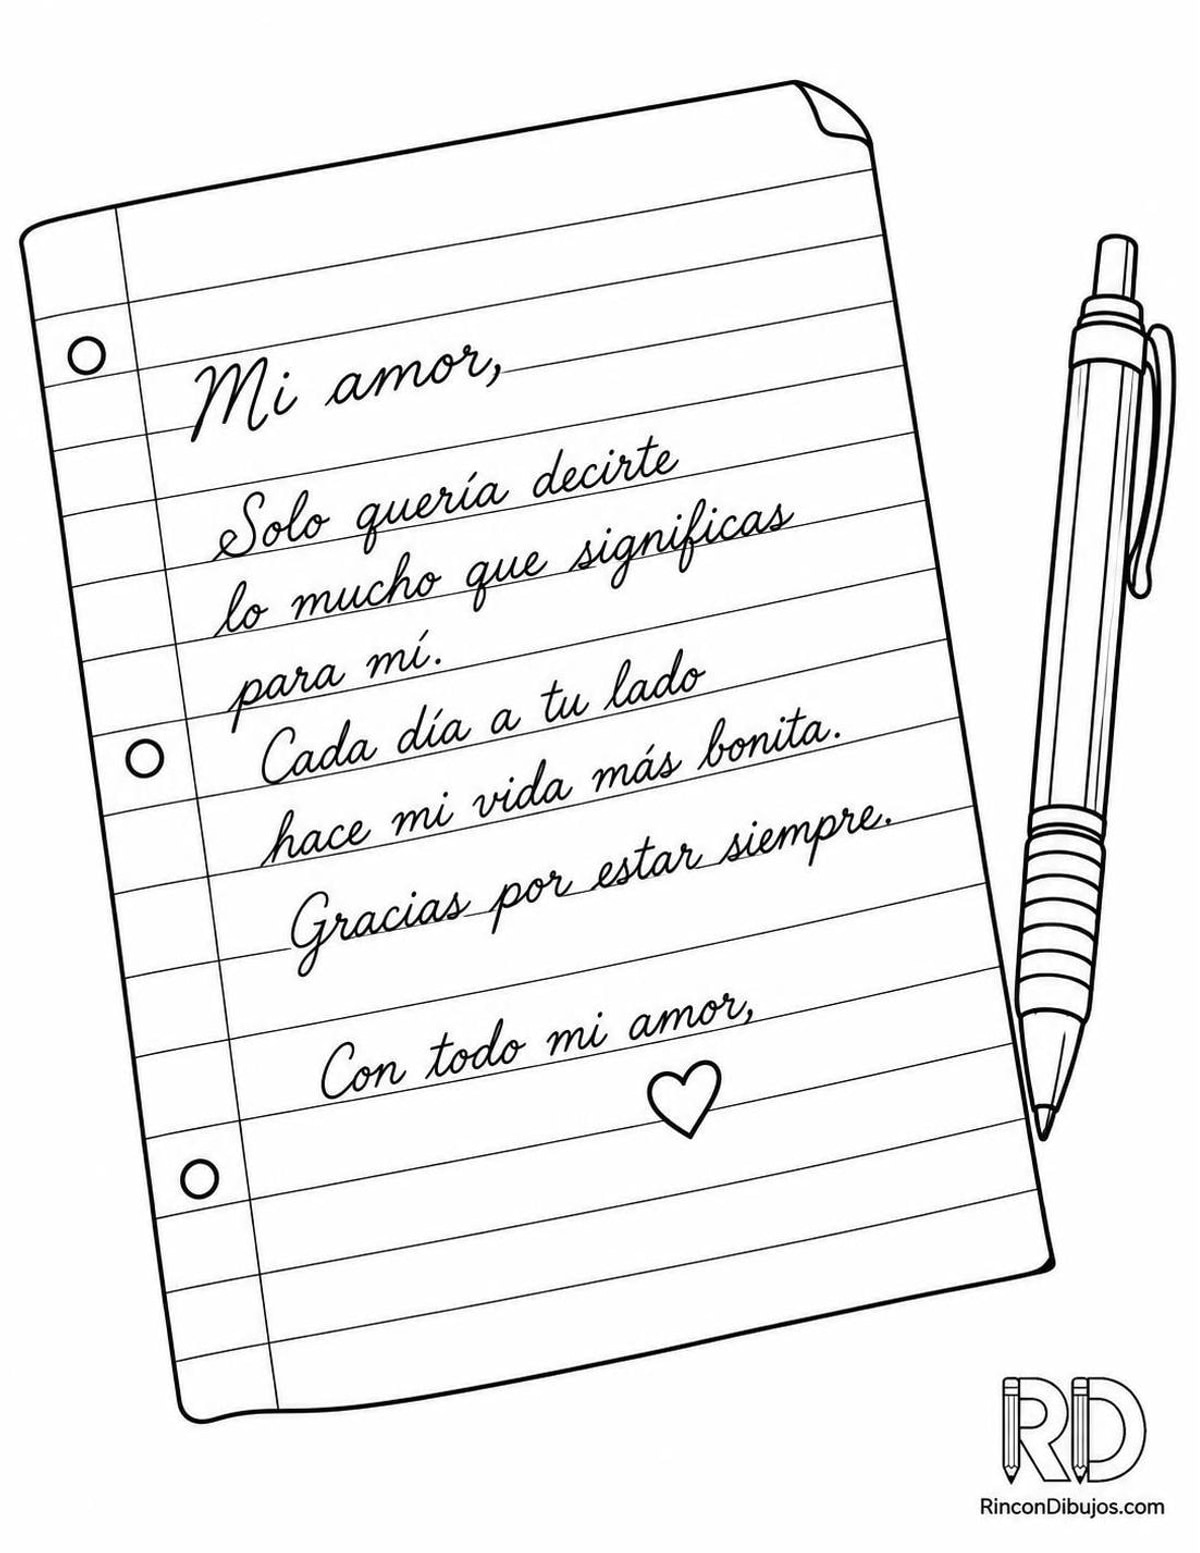 Mi amor,
Solo quería decirte
lo mucho que significas
para mí.
Cada día a tu lado
hace mi vida más bonita.
Gracias por estar siempre.
Con todo mi amor,
RD
RinconDibujos.com